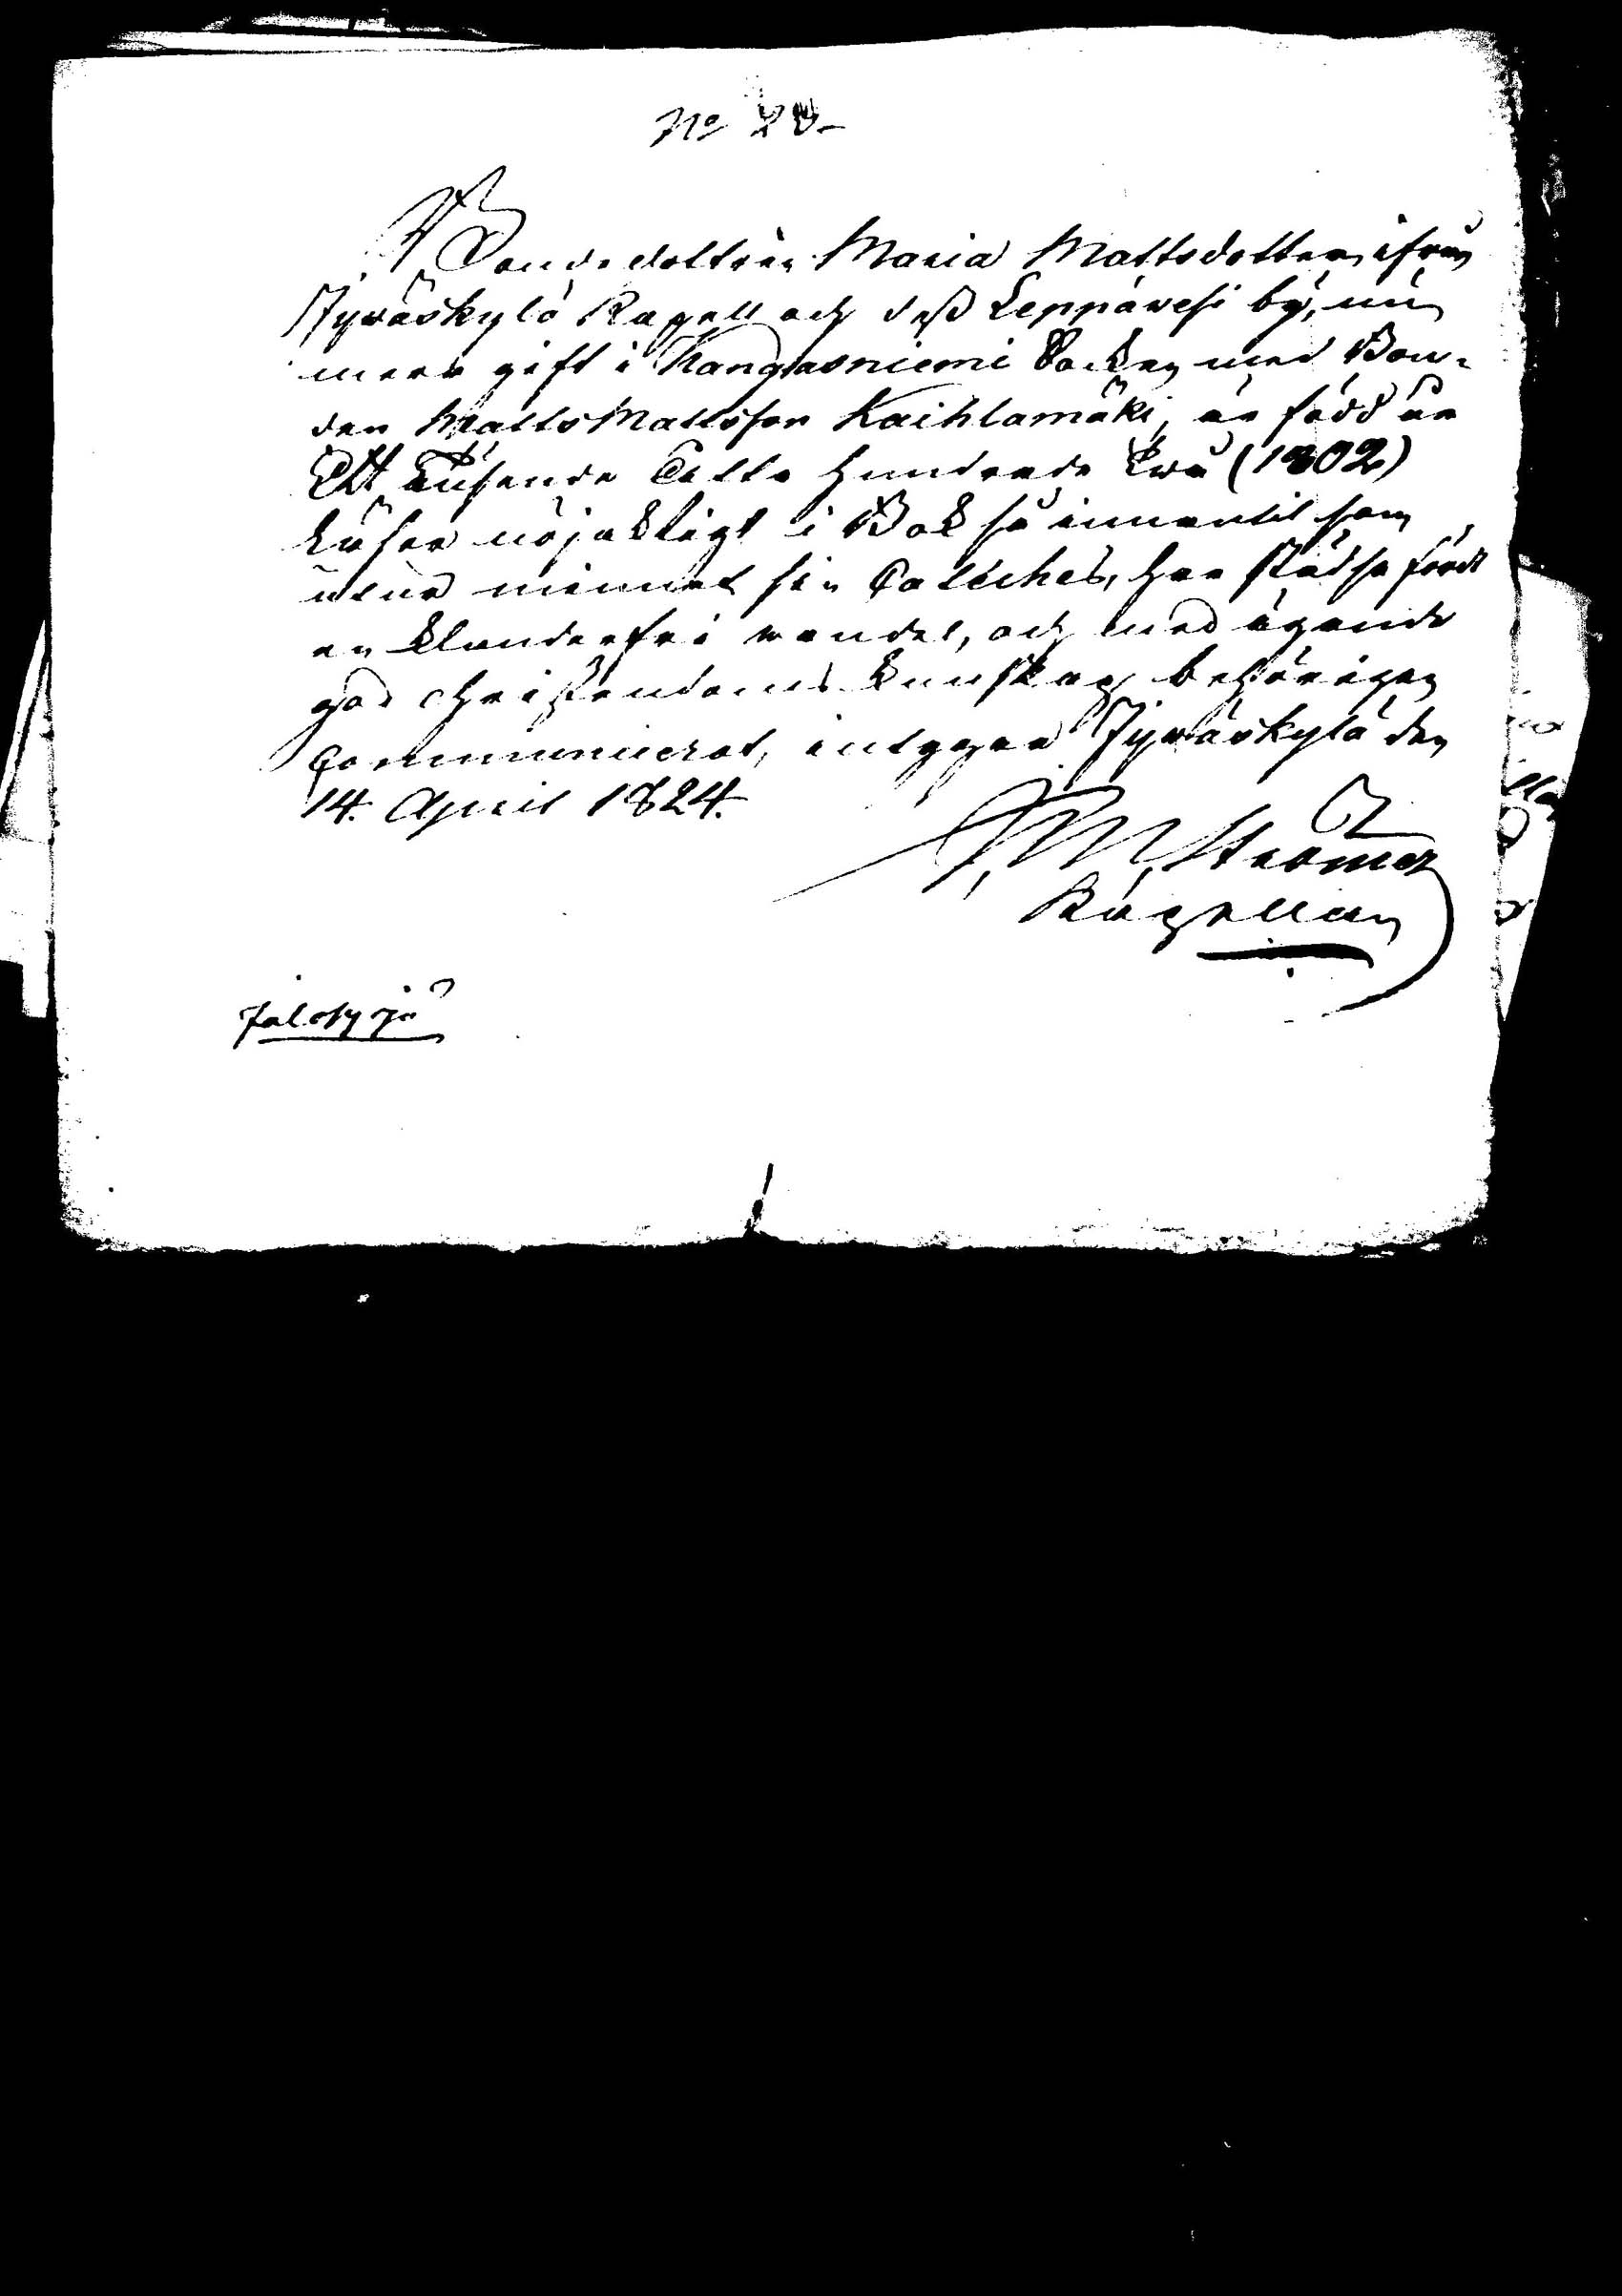 No 28.
Bondedottren Maria Mattsdotter ifrån
Jywäskylä Kapell och dess Leppävesi by, nu
mera gift i Kangasniemi Socken med Bon-
den Matts Mattsson Kaihlamäki, är född år
Ett tusende Otta hundrade twå (1802)
Läser nöjaktigt i Bok så innantil som
utur minnet sin Catéches, har städse fördt
en klanderfri wandel, och med ägande
god Christendoms kunskap behörigen
Communicerat, intygar Jywäskylä den
14. April 1824.
Strömer
Kapellan